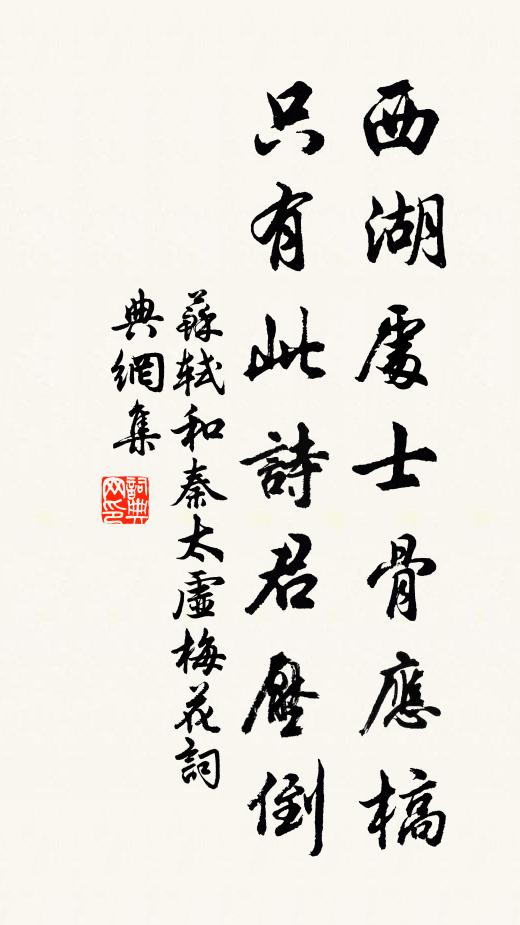 西湖處士骨應槁
只有此詩君壓倒
蘇軾和秦太虛梅花詞
典網集
詞典网印